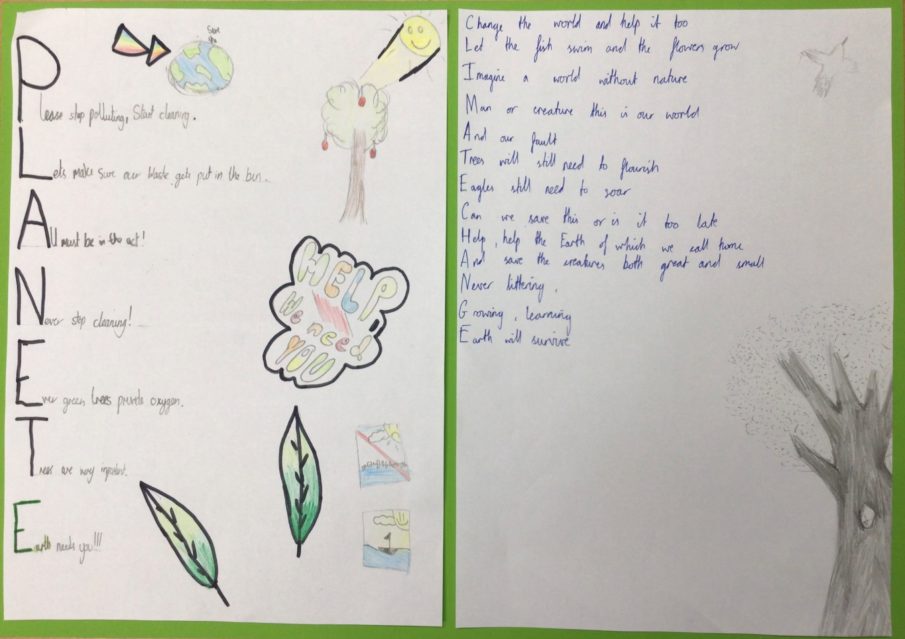 Please stop polluting, Start cleaning.
Lets make sure our waste gets put in the bin.
All must be in the act!
Never stop cleaning!
Ever green trees provide oxygen.
Trees are very important.
Earth needs you!!!
HELP
We need
YOU
Change the world and help it too
Let the fish swim and the flowers grow
Imagine a world without nature
Man or creature this is our world
And our fault
Trees will still need to flourish
Eagles still need to soar
Can we save this or is it too late
Help, help the Earth of which we call home
And save the creatures both great and small
Never littering,
Growing, learning
Earth will survive